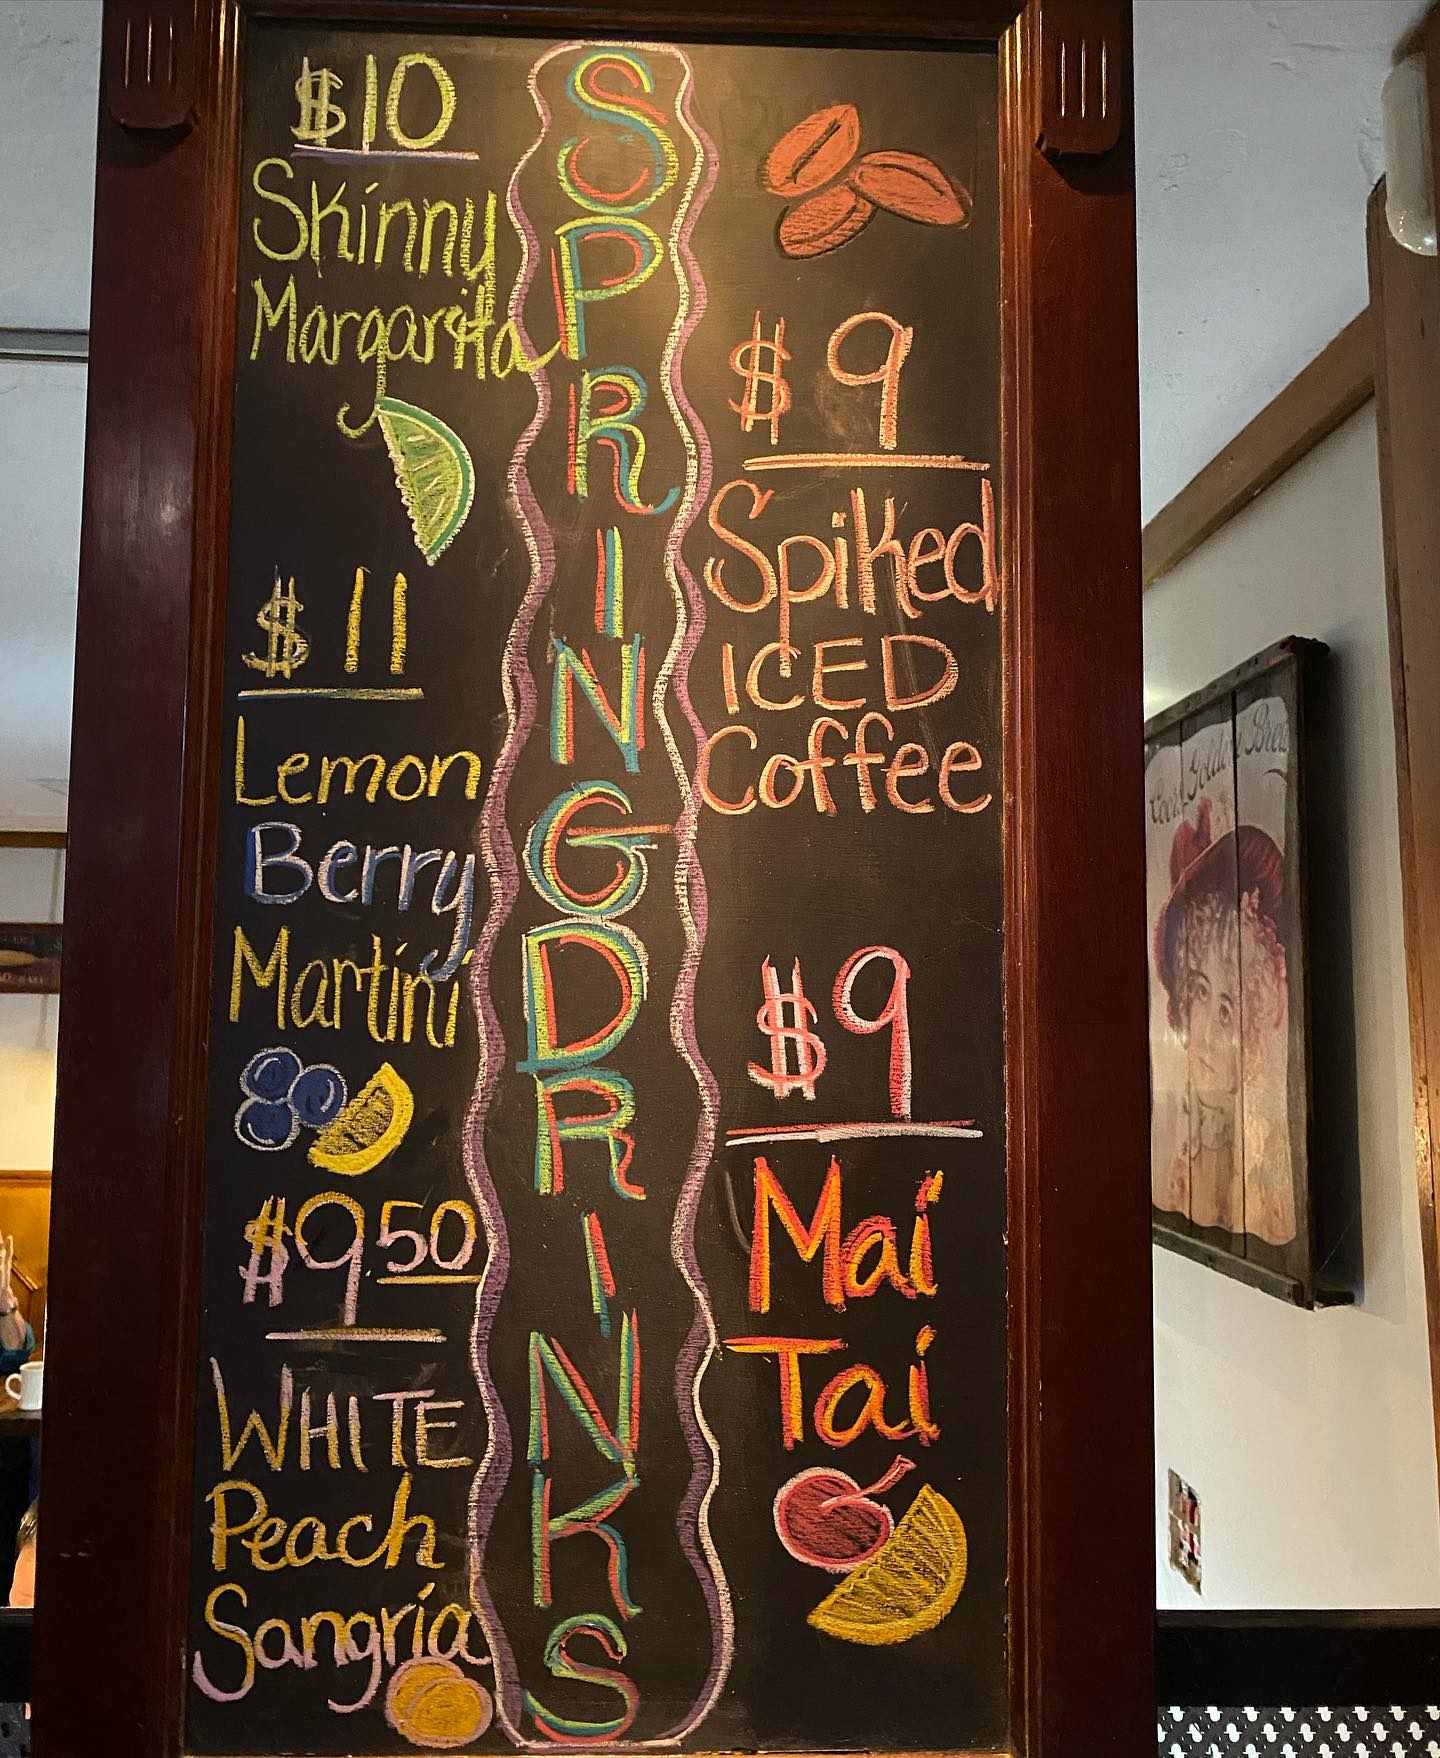 SPRING DRINKS
$10
Skinny
Margarita
$11
Lemon
Berry
Martini
$9.50
WHITE
Peach
Sangria
$9
Spiked
ICED
Coffee
$9
Mai
Tai
Coors Golden Brew